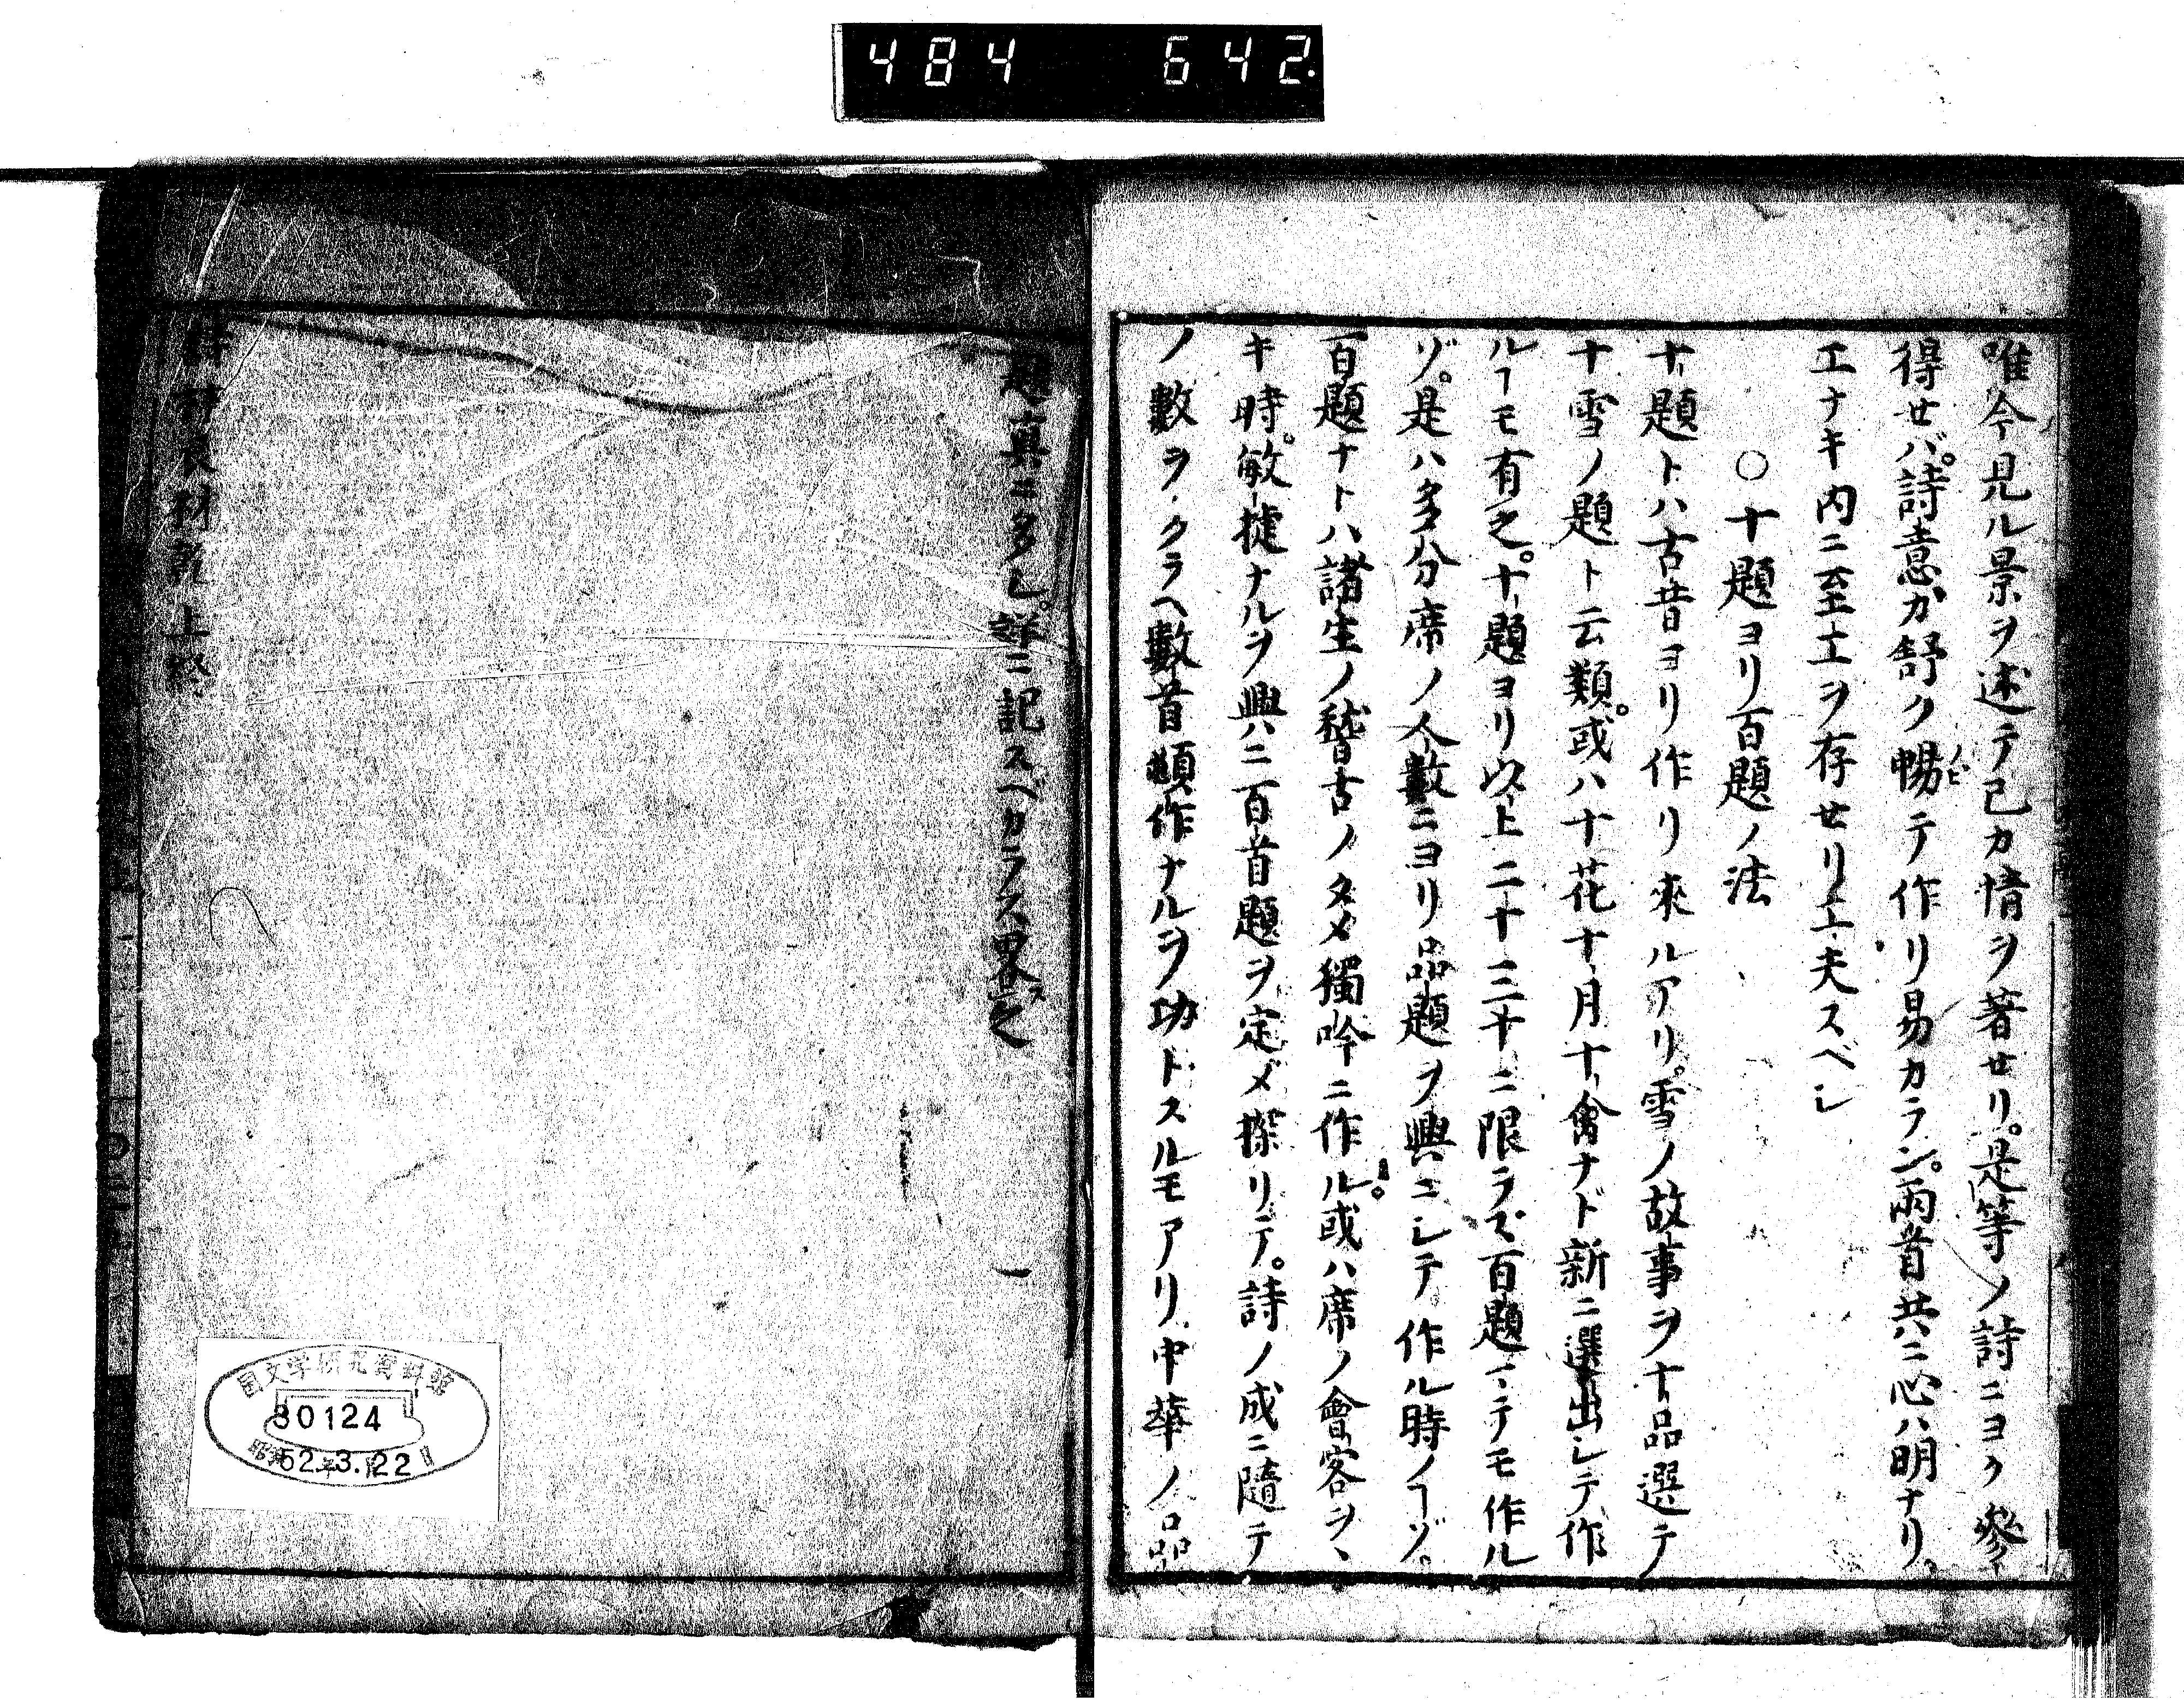 484 642
唯今見ル景ヲ述テ己カ情ヲ著セリ。是等ノ詩ニヨク參
得セバ。詩意カ舒ク暢テ作リ易カラン。兩首共ニ心ハ明ナリ。
エナキ内ニ至エヲ存セリ工夫スベシ
○十題ヨリ百題ノ法
十題トハ古昔ヨリ作リ來ルアリ。雪ノ故事ヲ十品選テ
十雪ノ題ト云類。或ハ十花十月十禽ナド新ニ選出シテ作
ルヿモ有之。十題ヨリ以上二十三十ニ限ラズ百題ニテモ作ル
ゾ。是ハ多分席ノ人數ニヨリ品題ヲ興ニシテ作ル時ノヿゾ。
百題ナトハ諸生ノ稽古ノタメ獨吟ニ作ル。或ハ席ノ會客ヲヽ
キ時。敏捷ナルヲ興ニ百首題ヲ定メ探リテ。詩ノ成ニ隨テ
ノ數ヲクラヘ數首頓作ナルヲ功トスルモアリ中華ノ品
題真ニ多シ。詳ニ記スベカラス畧ス之
一
上終
国文学研究資料館
30124
昭和52年3.22